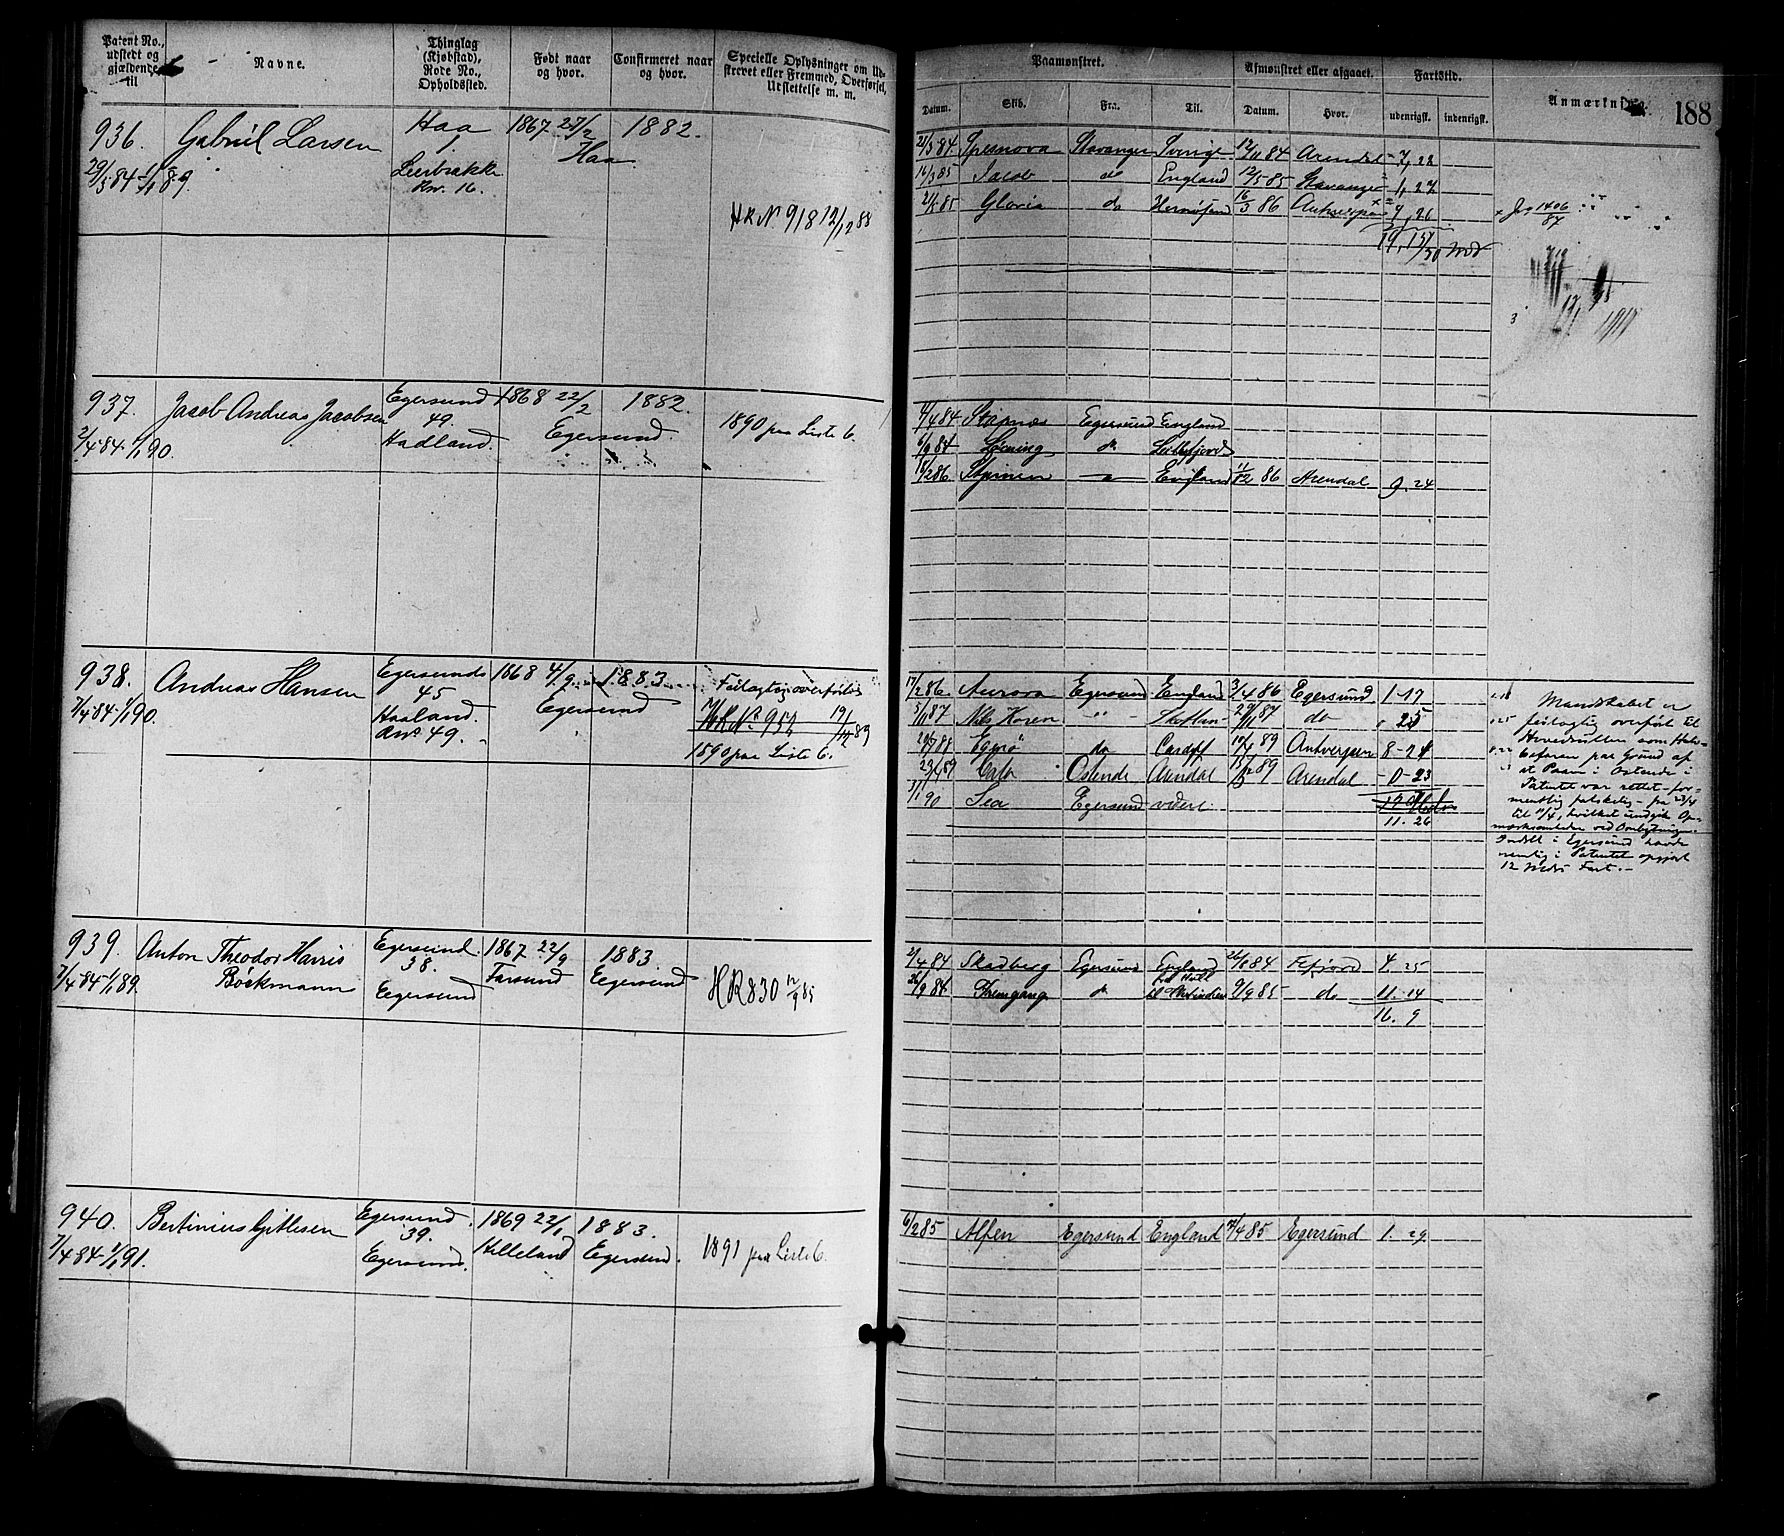 Patent No., udstedt og gjældende til
Navne.
Thinglag (Kjøbstad), Rode No., Opholdssted.
Født naar og hvor.
Confirmeret naar og hvor.
Specielle Oplysninger om Udskrevet eller Fremmed, Overførsel, Udslettelse m. m.
936. Gabriel Larsen Haa 1867 27/2 1882.
29/3 84-1/1 89. Haa
Rn. 16.
HR No 918 12/12 88
937. Jacob Andreas Jacobsen Egersund 1868 22/2 1882.
49. Egersund. 1890 paa Liste C.
2/4 84-1/1 90. Hadland.
938. Andreas Hansen Egersunds 1868 4/9 1883.
45 Egersund Feilagtig overført
7/4 84-1/1 90. Haaland.
Rno 49. HR No 952
1890 paa Liste C.
939. Anton Theodor Harris Egersund. 1867 22/9 1883.
38. Farsund Egersund
7/4 84-1/1 89. Bockmann Egersund HR 830 12/9 85
940. Bertinius Gjitlesen Egersund. 1869 22/1 1883.
39. Helleland Egersund. 1891 paa Liste C.
7/4 84-1/1 91. Egersund.
188
Paamønstret.
Afmønstret eller afgaaet.
Fartstid.
Anmærkning.
Datum. Skib. Fra. Til. Datum. Hvor. udenrigsk. indenrigsk.
21/3 84 Spesnova Stavanger Sverige 12/11 84 Arendal 7,22
16/3 85 Jacob do England 12/5 85 Stavanger 1,27
Gloria do 16/3 86 9,26
1406/87
4/4 84 Stapnæs Egersund England
6/9 84 do
18/2 86 England 11/12 86 Arendal 9.24
17/2 86. Aurora Egersund England 3/4 86 Egersund 1-17
5/11 87 Nils Koren -"- 29/11 87 do " 25
Egerø do Cardiff 10/4 89 Antverpen 8-24
23/4 89 Ostende Arendal 15/5 89 Arendal -0-23
3/1 90 Sea Egersund videre.
11. 26
Mandskabet er
feilagtig overført til
Hovedrullen som Halv-
befaren paa Grund af
at Paam. i Ostende i
Patentet var rettet - for-
mentlig falskelig - fra 23/4
til 11/4, hvilket undgik Op-
mærksomheden ved Ombytningen.
Indehl. i Egersund havde
nemlig i Patentet opgjort
12 Mdrs Fart.-
2/4 84 Skadberg Egersund England 26/8 84 Fefjord 4. 25
26/9 84 Fremgang do til Vestindien 9/9 85 do 11. 14
16. 9
6/2 85 Alfen Egersund England 4/4 85 Egersund 1. 29.